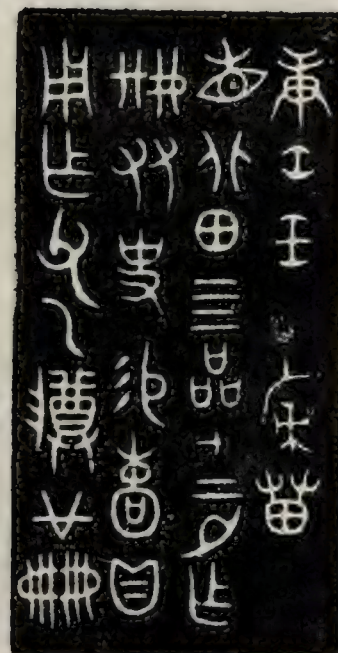 庚午王令寢農
省北田亖品才二月乍
冊友史易貝
用乍父乙尊冊